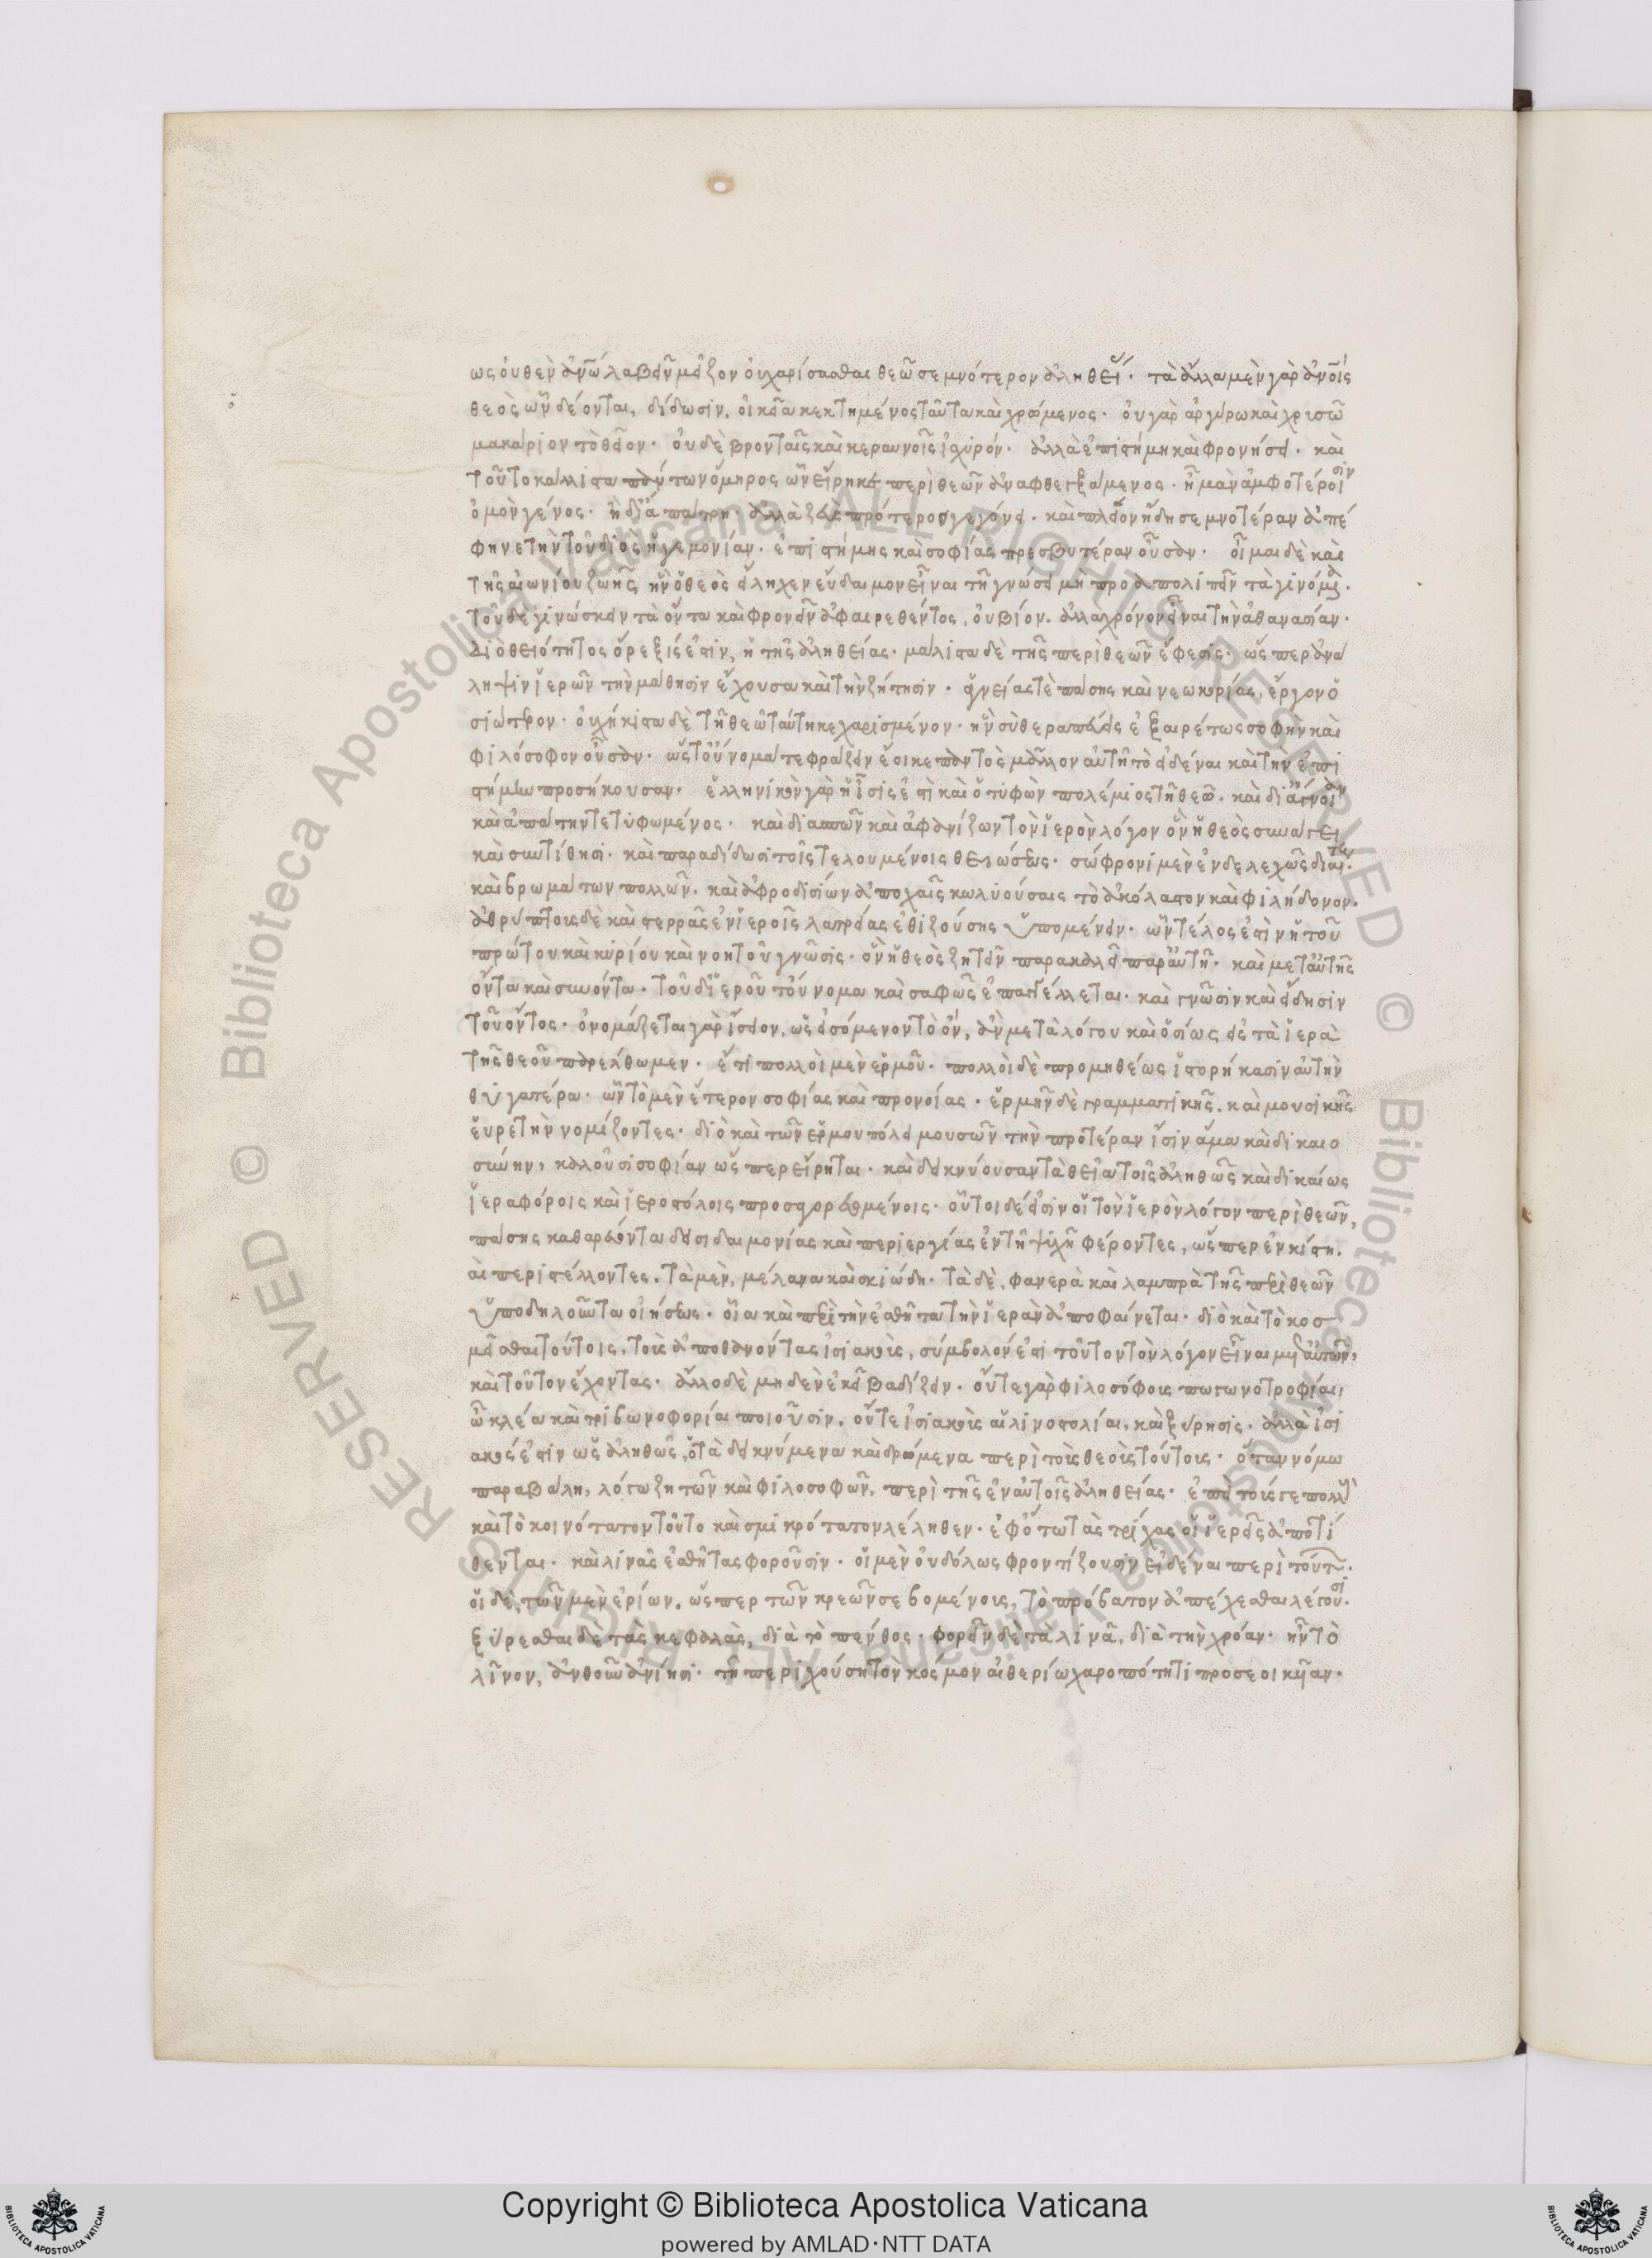 ὡς οὐθὲν ἀνθρώπῳ λαβεῖν μεῖζον οὐ χαρίσασθαι θεῷ σεμνότερον ἀληθείας· τὰ ἄλλα μὲν γὰρ ἀνθρώποις
θεὸς ὧν δέονται, δίδωσιν, οἰκεῖα κεκτημένος ταῦτα καὶ χρώμενος· οὐ γὰρ ἀργύρω καὶ χρυσῶ
μακάριον τὸ θεῖον· οὐδὲ βρονταῖς καὶ κεραυνοῖς ἰσχυρόν· ἀλλὰ ἐπιστήμη καὶ φρονήσει· καὶ
τοῦτο κάλλιστα πάντων ὅμηρος ὧν εἴρηκε περὶ θεῶν ἀναφθεγξάμενος· ἦ μὰν ἀμφοτέροισιν
ὁμὸν γένος· ἠδ' ἴα πάτρη· ἀλλὰ ζεὺς πρότερος γεγόνει· καὶ πλείονα ἤδη σεμνοτέραν ἀπέ
φηνε τὴν τοῦ διὸς ἡγεμονίαν· ἐπιστήμης καὶ σοφίας πρεσβυτέραν οὖσαν· οἶμαι δὲ καὶ
τῆς αἰωνίου ζωῆς ἣν ὁ θεὸς εἴληχεν εὔδαιμον εἶναι τῆ γνώσει μὴ προαπολιπεῖν τὰ γινόμενα·
τοῦ δὲ γινώσκειν τὰ ὄντα καὶ φρονεῖν ἀφαιρεθέντος, οὐ βίον· ἀλλὰ χρόνον εἶναι τὴν ἀθανασίαν·
διὸ θειότητος ὄρεξίς ἐστιν, ἡ τῆς ἀληθείας· μάλιστα δὲ τῆς περὶ θεῶν ἔφεσις· ὥσπερ ἀνά
ληψιν ἱερῶν τὴν μάθησιν ἔχουσα καὶ τὴν ζήτησιν· ἁγνείας τὲ πάσης καὶ νεωκορίας, ἔργον ὁ
σιώτερον· οὐχ ἥκιστα δὲ τῆ θεῶ ταύτη κεχαρισμένον· ἣν σὺ θεραπεύεις ἐξαιρέτως σοφὴν καὶ
φιλόσοφον οὖσαν· ὡς τοὔνομά τε φράζειν ἔοικε παντὸς μᾶλλον αὐτῆ τὸ εἰδέναι καὶ τὴν ἐπι
στήμην προσήκουσαν· ἑλληνικὸν γὰρ ἡ ἶσίς ἐστι καὶ ὁ τυφὼν πολέμιος τῆ θεῶ· καὶ δι' ἄγνοιαν
καὶ ἀπάτην τετυφωμένος· καὶ διασπῶν καὶ ἀφανίζων τὸν ἱερὸν λόγον ὃν ἡ θεὸς συνάγει
καὶ συντίθησι· καὶ παραδίδωσι τοῖς τελουμένοις θειώσεως· σώφρονι μὲν ἐνδελεχῶς διαίτη·
καὶ βρωμάτων πολλῶν· καὶ ἀφροδισίων ἀποχαῖς κωλυούσαις τὸ ἀκόλαστον καὶ φιλήδονον·
ἀθρύπτους δὲ καὶ στερρὰς ἐν ἱεροῖς λατρείας ἐθιζούσης ὑπομένειν· ὧν τέλος ἐστὶν ἡ τοῦ
πρώτου καὶ κυρίου καὶ νοητοῦ γνῶσις· ὃν ἡ θεὸς ζητεῖν παρακαλεῖ παρ' αὐτῆ· καὶ μετ' αὐτῆς
ὄντα καὶ συνόντα· τοῦ δ' ἱεροῦ τοὔνομα καὶ σαφῶς ἐπαγγέλλεται· καὶ γνῶσιν καὶ εἴδησιν
τοῦ ὄντος· ὀνομάζεται γὰρ ἴσειον, ὡς εἰσόμενον τὸ ὄν, ἂν μετὰ λόγου καὶ ὁσίως εἰς τὰ ἱερὰ
τῆς θεοῦ παρέλθωμεν· ἔτι πολλοὶ μὲν ἑρμοῦ· πολλοὶ δὲ προμηθέως ἱστορήκασιν αὐτὴν
θυγατέρα· ὧν τὸν μὲν ἕτερον σοφίας καὶ προνοίας· ἑρμῆν δὲ γραμματικῆς· καὶ μουσικῆς
εὑρετὴν νομίζοντες· διὸ καὶ τῶν ἑρμουπόλει μουσῶν τὴν προτέραν ἶσιν ἅμα καὶ δικαιο
σύνην, καλοῦσι σοφίαν ὥσπερ εἴρηται· καὶ δεικνύουσαν τὰ θεῖα τοῖς ἀληθῶς καὶ δικαίως
ἱεραφόροις καὶ ἱεροστόλοις προσαγορευομένοις· οὗτοι δέ εἰσιν οἱ τὸν ἱερὸν λόγον περὶ θεῶν,
πάσης καθαρεύοντα δεισιδαιμονίας καὶ περιεργίας ἐν τῆ ψυχῆ φέροντες, ὥσπερ ἐν κίστη·
αι περιστέλλοντες· τὰ μὲν, μέλανα καὶ σκιώδη· τὰ δὲ, φανερὰ καὶ λαμπρὰ τῆς περὶ θεῶν
ὑποδηλοῦντα οἰήσεως· οἷα καὶ περὶ τὴν ἐσθῆτα τὴν ἱερὰν ἀποφαίνεται· διὸ καὶ τὸ κοσ
μεῖσθαι τούτοις, τοὺς ἀποθανόντας ἰσιακοὺς, σύμβολόν ἐστι τοῦτον τὸν λόγον εἶναι μετ' αὐτῶν,
καὶ τοῦτον ἔχοντας· ἄλλο δὲ μηδὲν ἐκεῖ βαδίζειν· οὔτε γὰρ φιλοσόφους πωγωνοτροφίαι,
ὦ κλέα καὶ τριβωνοφορίαι ποιοῦσιν, οὔτε ἰσιακοὺς αἱ λινοστολίαι, καὶ ξύρησις· ἀλλὰ ἰσι
ακός ἐστιν ὡς ἀληθῶς, ὁ τὰ δεικνύμενα καὶ δρώμενα περὶ τοὺς θεοὺς τούτους· ὅταν νόμω
παραβάλη, λόγω ζητῶν καὶ φιλοσοφῶν, περὶ τῆς ἐν αὐτοῖς ἀληθείας· ἐπεὶ τούς γε πολλοὺς
καὶ τὸ κοινότατον τοῦτο καὶ σμικρότατον λέληθεν· ἐφ' ὅτω τὰς τρίχας οἱ ἱερεῖς ἀποτί
θενται· καὶ λινᾶς ἐσθῆτας φοροῦσιν· οἱ μὲν οὐδόλως φροντίζουσιν εἰδέναι περὶ τούτων·
οἱ δὲ, τῶν μὲν ἐρίων, ὥσπερ τῶν κρεῶν σεβομένους, τὸ πρόβατον ἀπέχεσθαι λέγουσι·
ξύρεσθαι δὲ τὰς κεφαλὰς, διὰ τὸ πένθος· φορεῖν δὲ τὰ λινᾶ, διὰ τὴν χρόαν· ἣν τὸ
λῖνον, ἀνθοῦν ἀνίησι· τῆ περιχούση τὸν κόσμον αἰθερίω χαροπότητι προσεοικυῖαν·
Copyright © Biblioteca Apostolica Vaticana
powered by AMLAD·NTT DATA